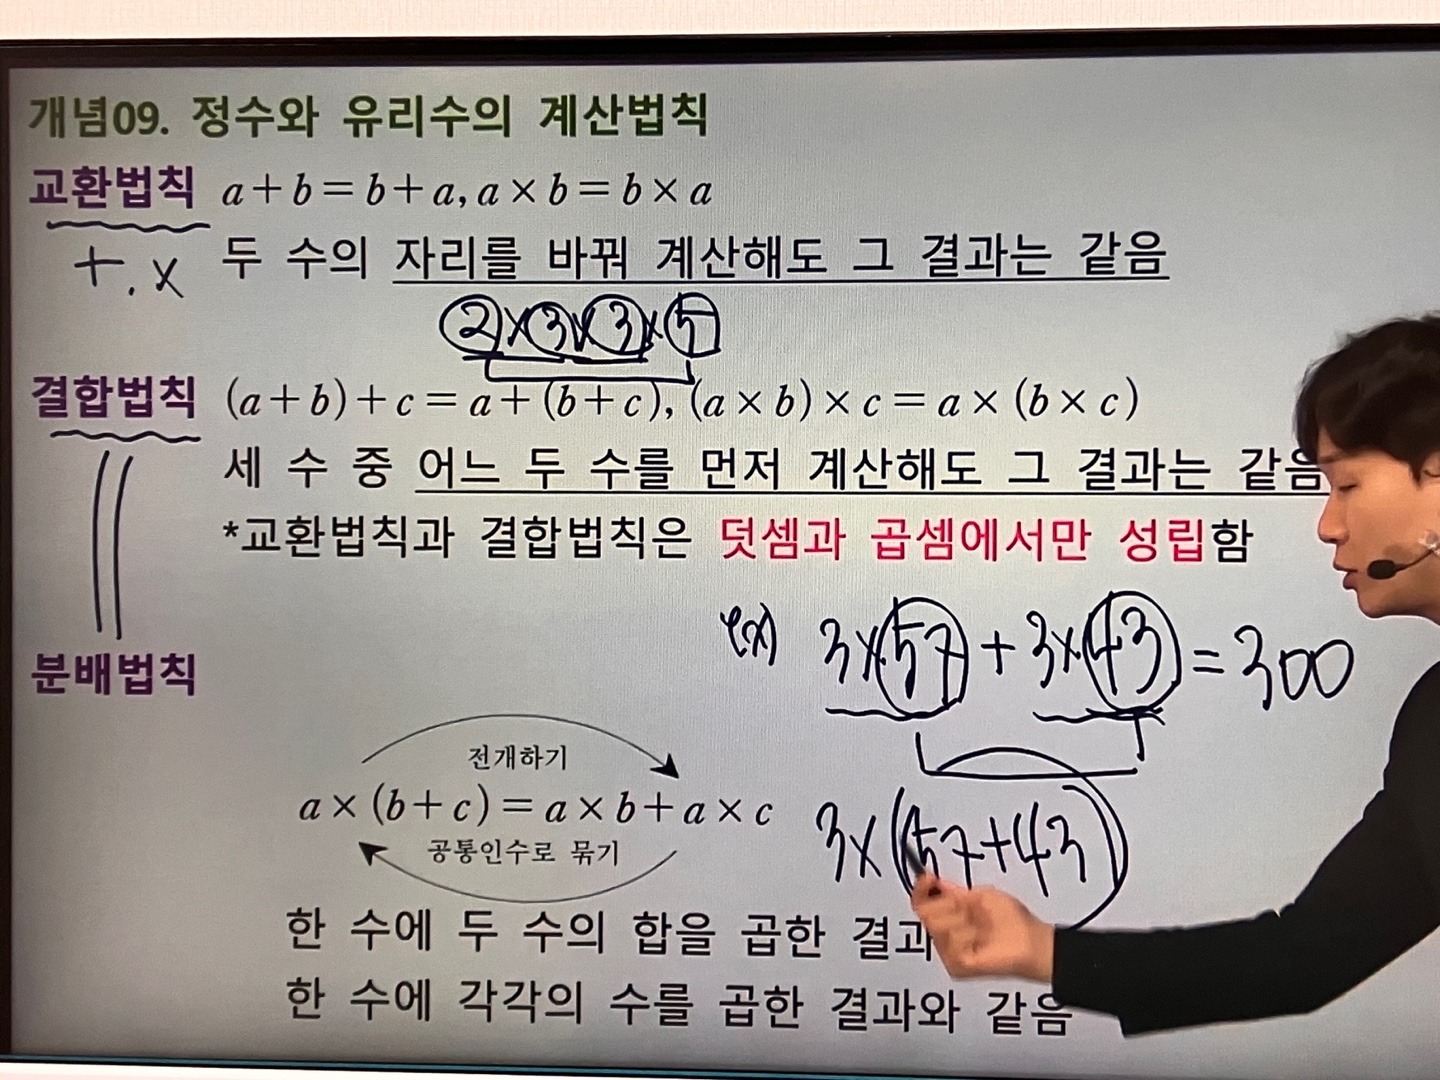 개념09. 정수와 유리수의 계산법칙
교환법칙 a+b=b+a, a×b=b×a
+. × 두 수의 자리를 바꿔 계산해도 그 결과는 같음
2×3×3×5
결합법칙 (a+b)+c=a+(b+c), (a×b)×c=a×(b×c)
세 수 중 어느 두 수를 먼저 계산해도 그 결과는 같음
*교환법칙과 결합법칙은 덧셈과 곱셈에서만 성립함
ex) 3×57+3×43=300
분배법칙
전개하기
a×(b+c)=a×b+a×c
공통인수로 묶기
3×(57+43)
한 수에 두 수의 합을 곱한 결과
한 수에 각각의 수를 곱한 결과와 같음